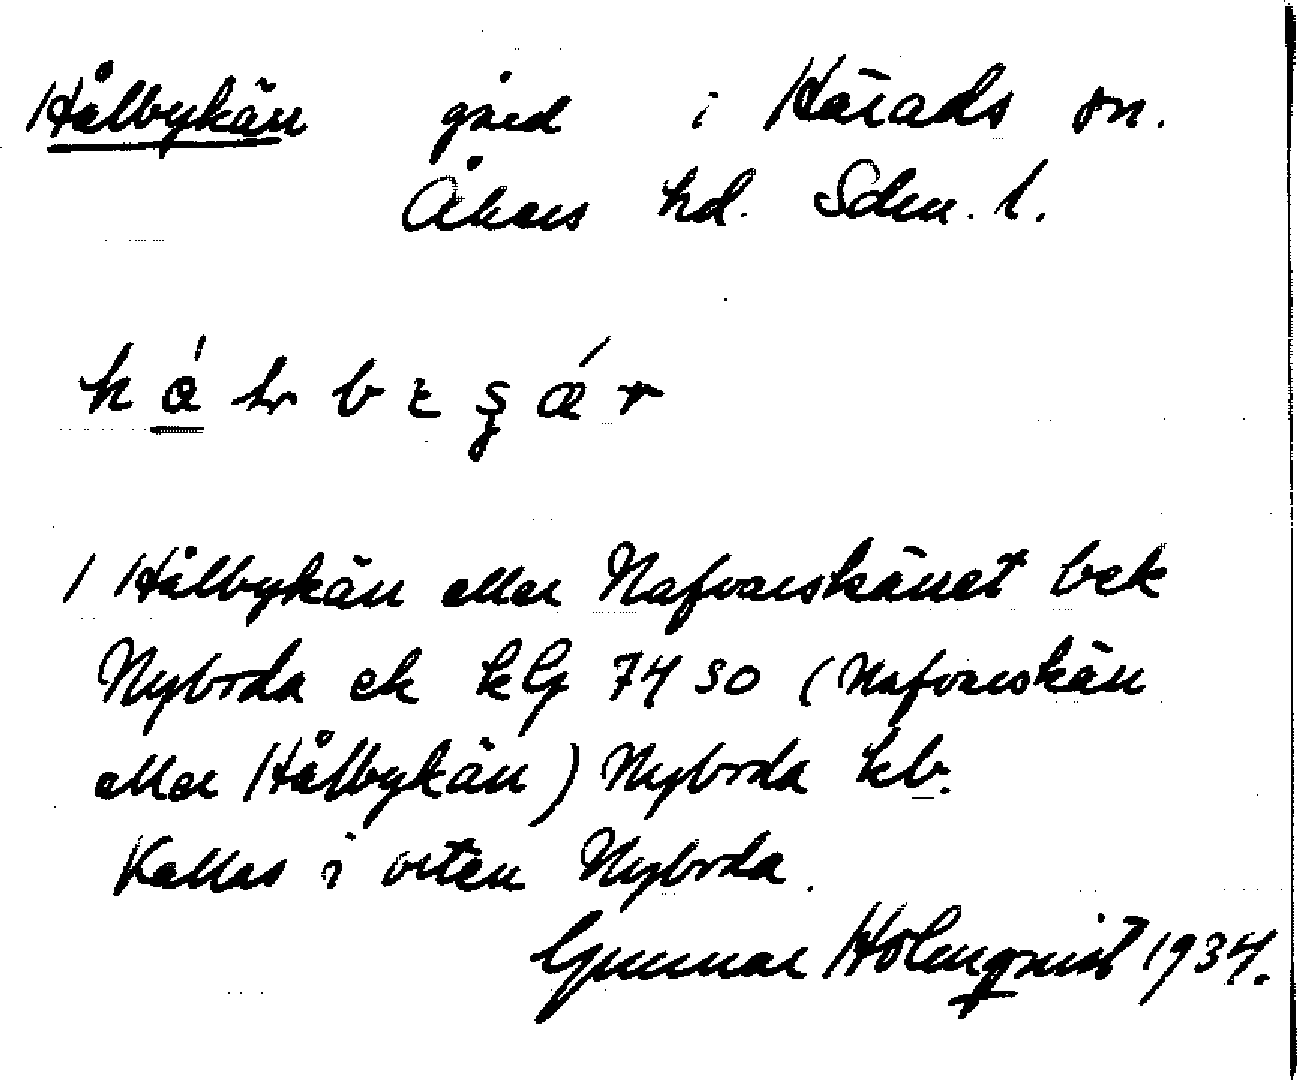 Hålbykärr gård i Härads sn.
Åkers hd. Södm. l.
Hålbykärr eller Nafvarskärret bek
Nybroda ek kG 7450 (Nafvarskärr
eller Hålbykärr) Nybroda kb.
Kallas i orten Nybroda.
Gunnar Holmqvist 1934.